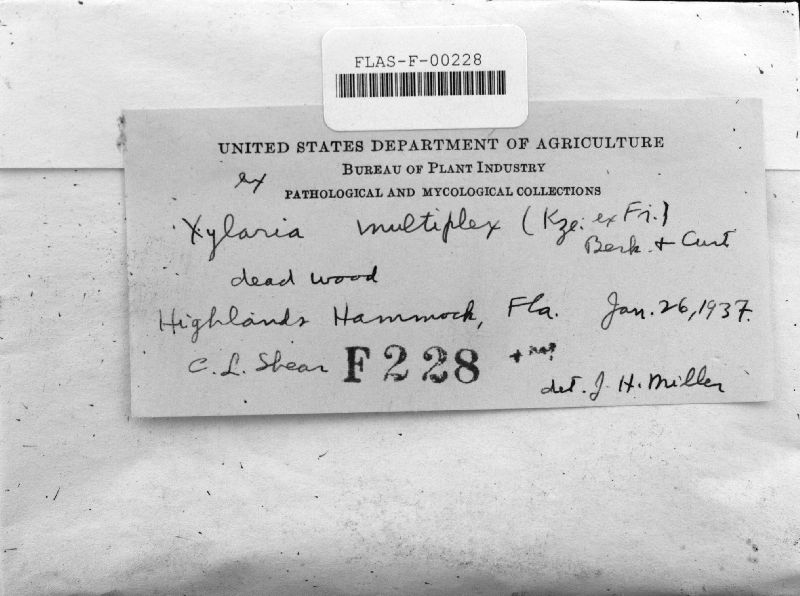 FLAS-F-00228
UNITED STATES DEPARTMENT OF AGRICULTURE
BUREAU OF PLANT INDUSTRY
ex
PATHOLOGICAL AND MYCOLOGICAL COLLECTIONS
Xylaria multiplex (Kze. ex Fr.)
Berk. + Curt
dead wood
Highlands Hammock, Fla. Jan. 26, 1937.
C. L. Shear F228
det. J. H. Miller